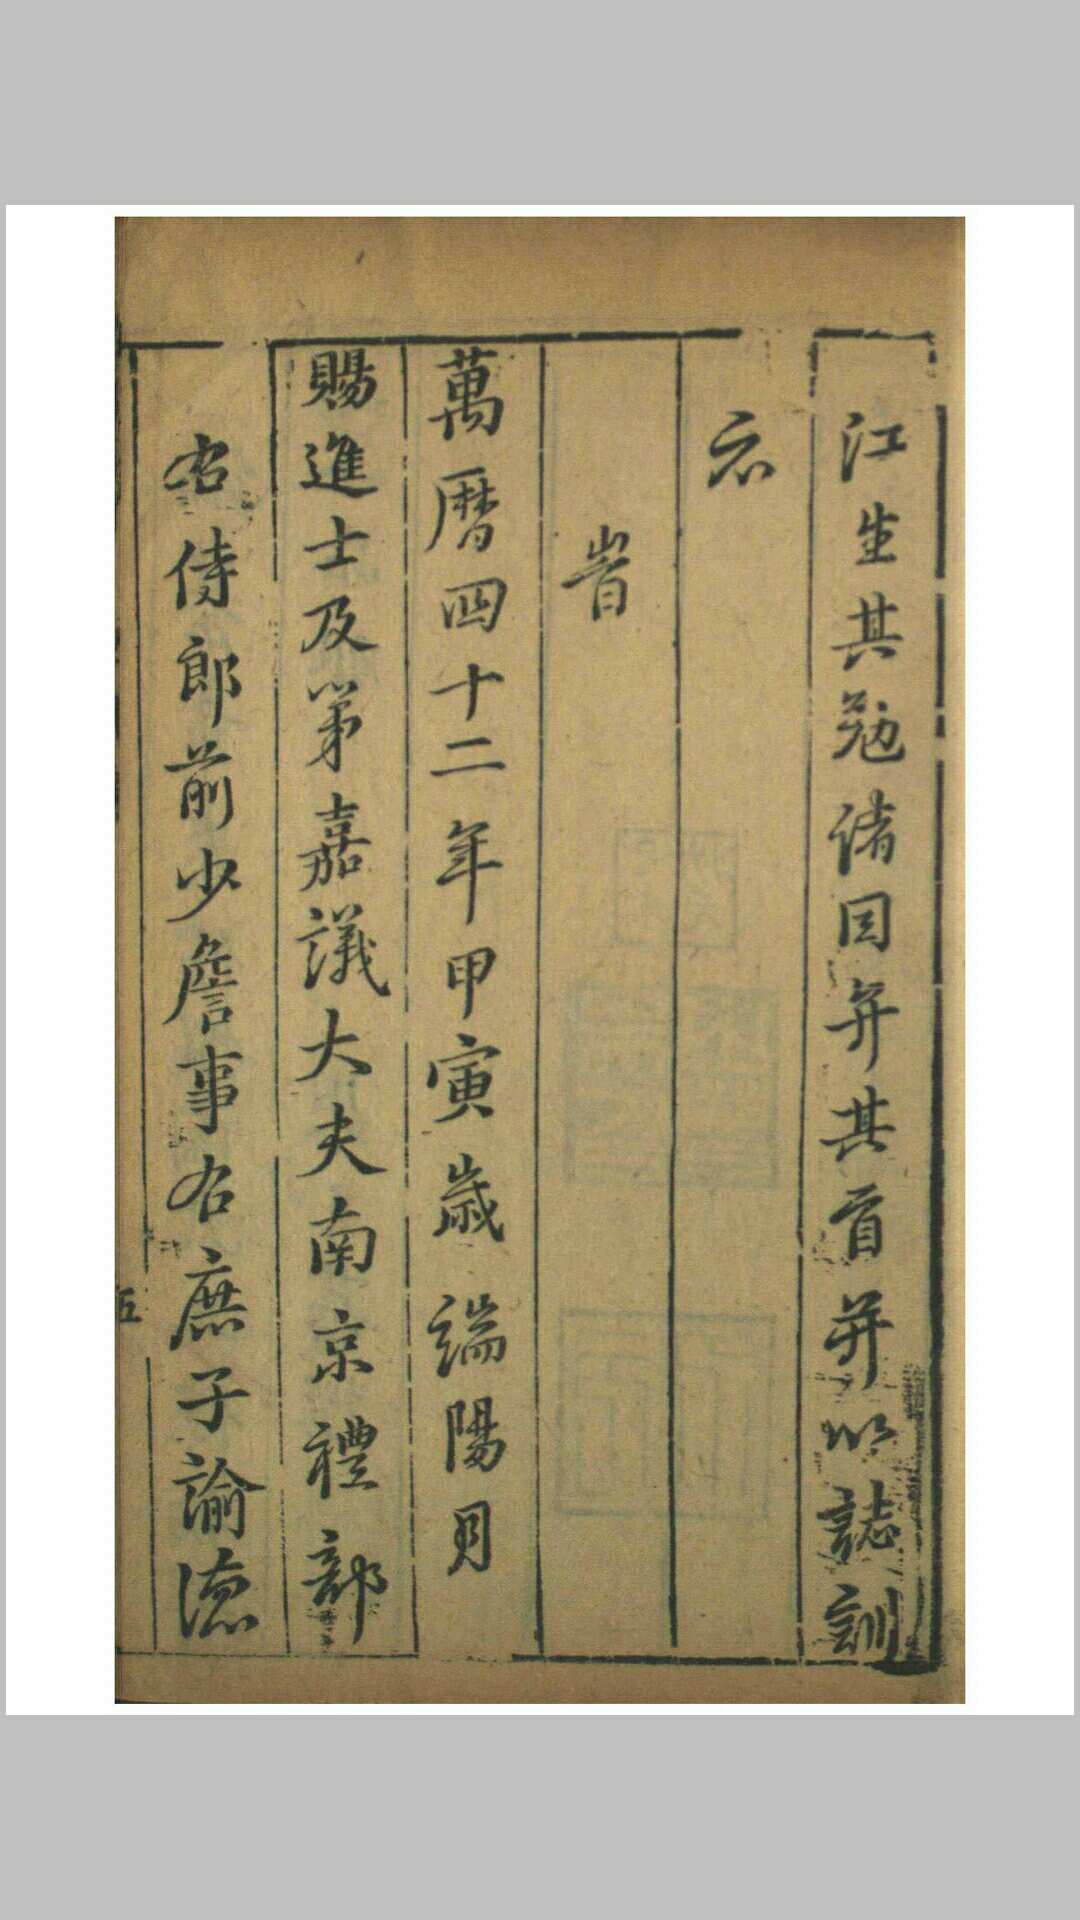 江生其勉諸因弁其首并以誌訓
示
旹
萬曆四十二年甲寅歲端陽月
賜進士及第嘉議大夫南京禮部
右侍郎前少詹事右庶子諭德
五